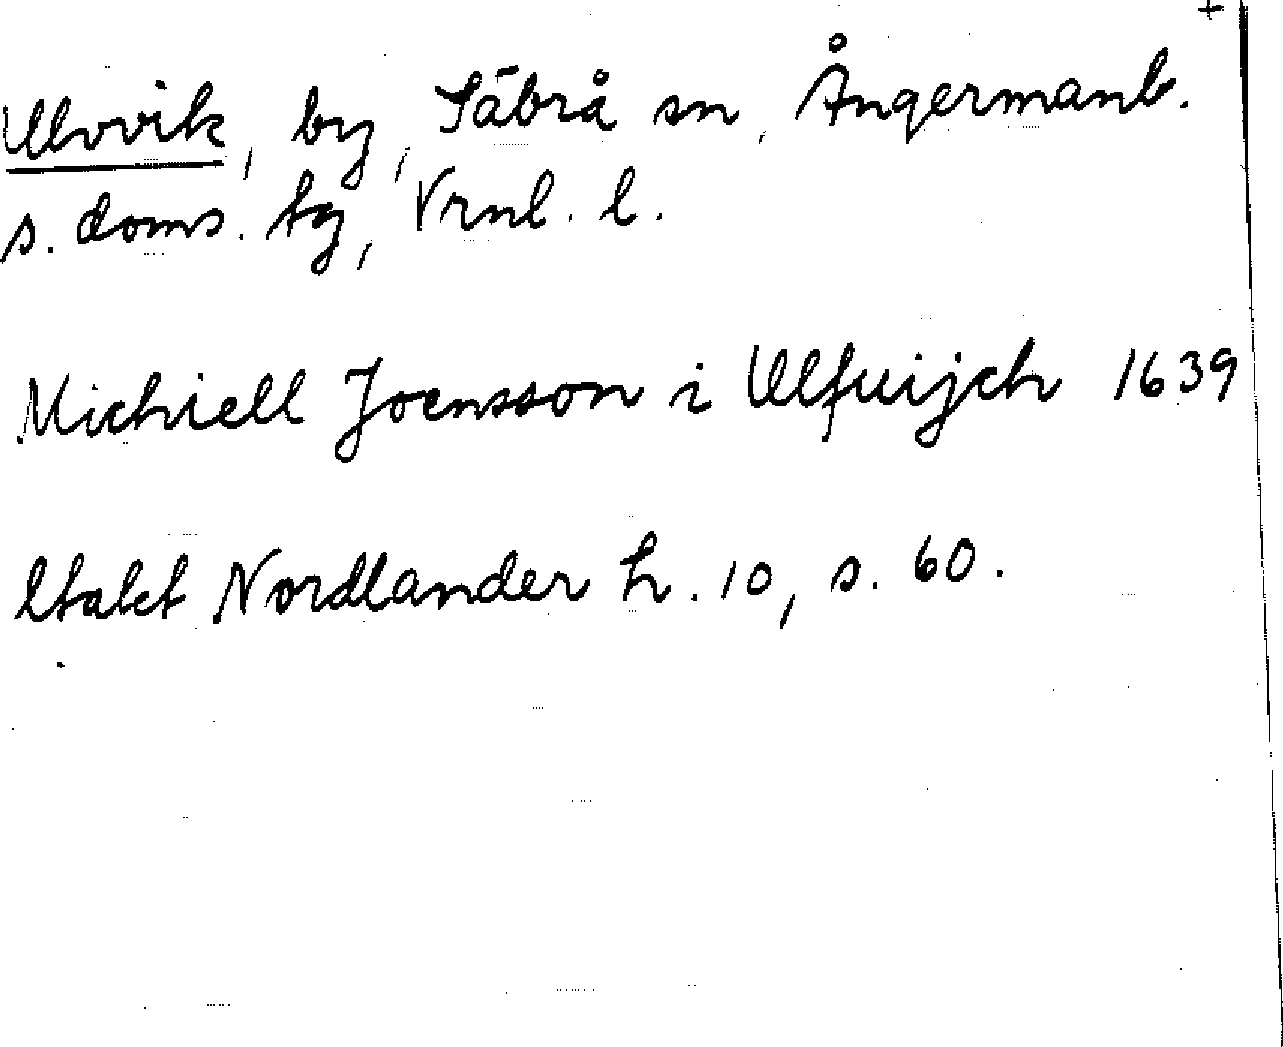 +
Ulvvik, by, Säbrå sn, Ångermanl.
s. doms. tg, Vrnl. l.
Michiell Joensson i Ulfuijch 1639
Utakt Nordlander h. 10, s. 60.